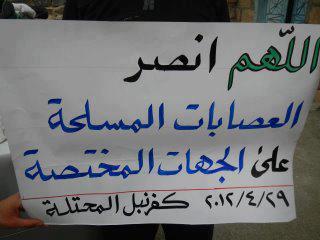 اللّهم انصر
العصابات المسلحة
على الجهات المختصة
٢٠١٢/٤/٢٩ كفرنبل المحتلة